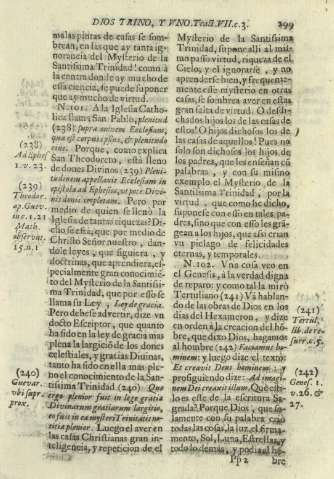 DIOS TRINO, Y VNO. Trat. VII. c. 3. 299
malas pintas de casas se som-
brean, en las que ay tanta ig-
norancia del Mysterio de la
Santissima Trinidad! como à
la contra donde ay mucho de
essa ciencia, se puede suponer
que ay mucho de virtud.
N. 101. A la Iglesia Catho-
lica llamò San Pablo, plenitud
(238): supra omnem Ecclesiam,
que est corpus ipsius, & plenitudo
eius. Porque, como explica
San Theodoreto, està lleno
de dones Divinos (239) Pleni-
dinem appellavit Ecclesiam in
epistola ad Ephesios, ut pote Divi-
nis donis impletam. Pero por
medio de quien se llenò la
Iglesia de tantas riquezas? Di-
zese es esta, que por medio de
Christo Señor nuestro, dan-
dole leyes, que siguiera, y
doctrinas, que aprendiera, es-
pecialmente gran conocimiē-
to del Mysterio de la Santissi-
ma Trinidad, que por esso se
llama su Ley, Ley de gracia.
Pero debese advertir, dize vn
docto Escriptor, que quanto
ha sido en la ley de gracia mas
plena la largició de los dones
celestiales, y gracias Divinas,
tanto ha sido en ella mas ple-
no el conocimiento de la San-
tissima Trinidad (240) Quo
ergo plenior fuit in lege gratia
Divinarum gratiarum largitio,
eo fuit in ea mysterij Trinitatis no-
titia plenior. Luego el aver en
las casas Christianas gran in-
teligencia, y repeticion de el
(238)
Ad Ephes.
1. v. 23.
(239)
Theodor.
in.
1. 21
Math.
observat.
15. n. 1
(240)
Guevar.
vbi supr.
prox.
Mysterio de la Santissima
Trinidad, supone alli al mis-
mo passo virtud, riqueza de el
Cielo, y el ignorarse, y no
aprenderse bien, y frequente-
mente esse mysterio en otras
casas, se sombrea aver en estas
gran falta de virtud. O desdi-
chados hijos los de las casas de
essos! O hijos dichosos los de
las casas de aquellos! Pues no
solo son dichosos los hijos de
los padres, que les enseñan cō
palabras, y con su mismo
exemplo el Mysterio de la
Santissima Trinidad, por la
virtud, que como he dicho,
suponese con esso en tales pa-
dres, sino que con esso les gra-
gean a los hijos, que assi crian
vn pielago de felicidades
eternas, y temporales.
N. 102. Vna cosa veo en
el Genesis, a la verdad digna
de reparo: y como tal la mirò
Tertuliano (241) Và hablan-
do de las obras de Dios en los
dias del Hexameron, y dize
en orden à la creacion del hō-
bre, que dixo Dios, hagamos
al hombre (242) Faciamus ho-
minem; y luego dize el texto
Et creavit Deus hominem: y
prosiguiendo dize: Ad imagi-
nem Dei creavit illum. Què est-
lo es este de la escritura Sa-
grada? Porque Dios, que so-
lamente con su palabra criò
todas las cosas, la luz, el firma-
mento, Sol, Luna, Estrellas, y
todo lo demàs, y podia al hō-
(241)
Tertul.
lib. de re-
surr. c. 5.
(242)
Genes. 1.
v. 26. &
27.
Pp 2 bre